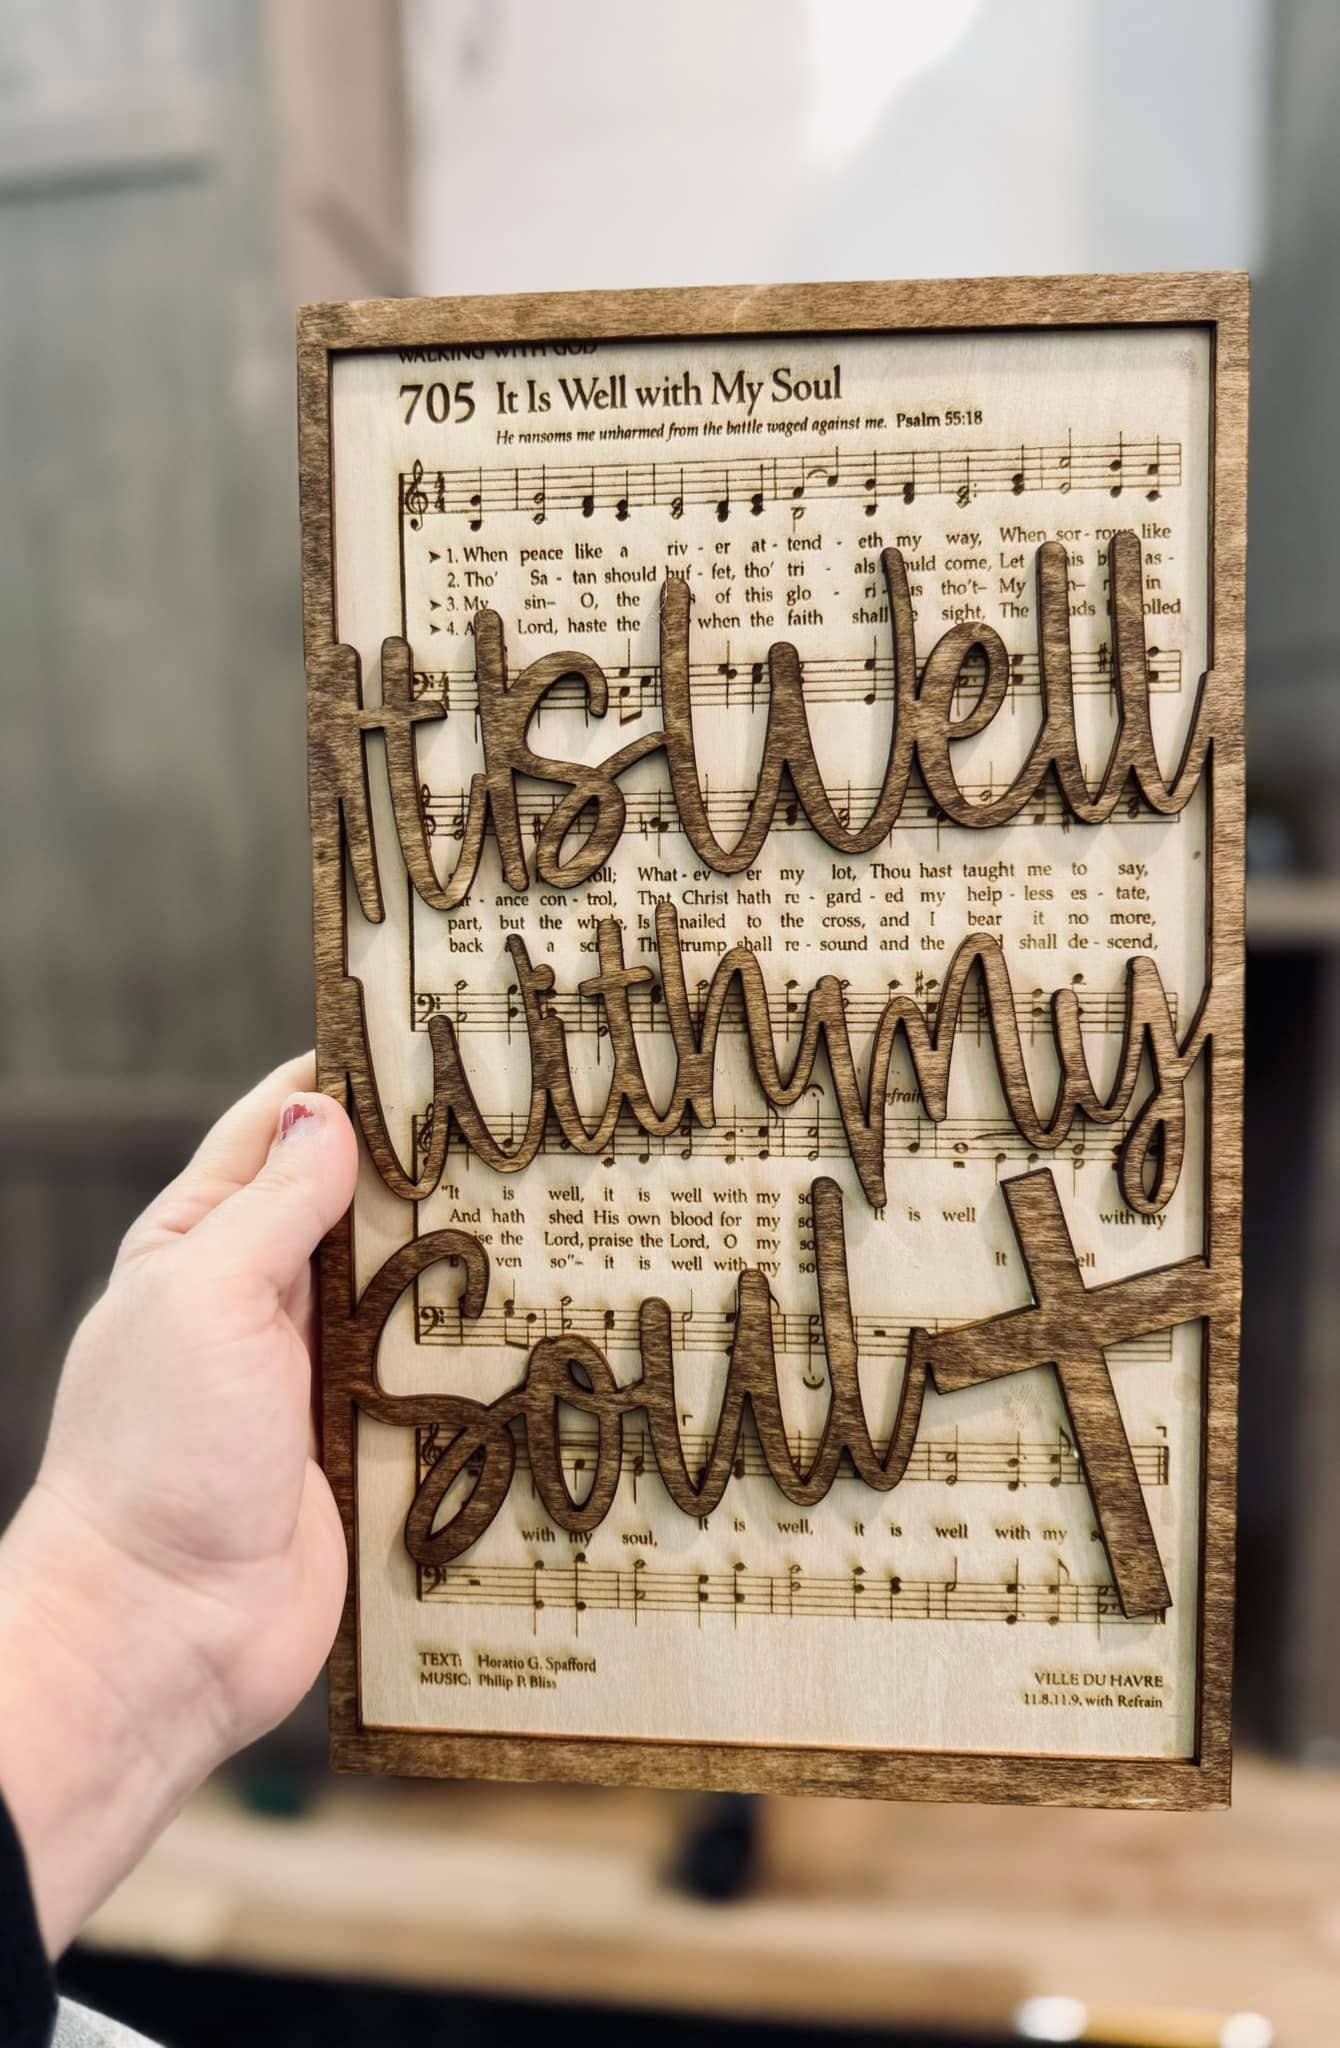 WALKING WITH GOD
705 It Is Well with My Soul
He ransoms me unharmed from the battle waged against me. Psalm 55:18
1. When peace like a riv - er at - tend - eth my way, When sor - rows like
2. Tho' Sa - tan should buf - fet, tho' tri - als should come, Let this as -
3. My sin– O, the of this glo - ri - tho't– My in
4. Lord, haste the when the faith shall sight, The
It Is Well
What - ev - er my lot, Thou hast taught me to say,
ance con - trol, That Christ hath re - gard - ed my help - less es - tate,
part, but the whole, Is nailed to the cross, and I bear it no more,
back a The trump shall re - sound and the shall de - scend,
with my
Refrain
"It is well, it is well with my It is well with my
And hath shed His own blood for my
the Lord, praise the Lord, O my
so"– it is well with my It
Soul
with my soul, It is well, it is well with my
TEXT: Horatio G. Spafford
MUSIC: Philip P. Bliss
VILLE DU HAVRE
11.8.11.9. with Refrain